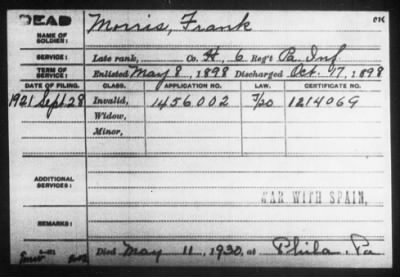 DEAD
NAME OF SOLDIER: Morris, Frank
SERVICE: Late rank, Co. H, 6 Reg't Pa. Inf
TERM OF SERVICE: Enlisted May 8, 1898 Discharged Oct. 17, 1898
DATE OF FILING. CLASS. APPLICATION NO. LAW. CERTIFICATE NO.
1921 Sept 28 Invalid, 1456002 7/20 1214069
Widow,
Minor,
ADDITIONAL SERVICES:
WAR WITH SPAIN,
REMARKS:
Died May 11, 1930, at Phila. Pa